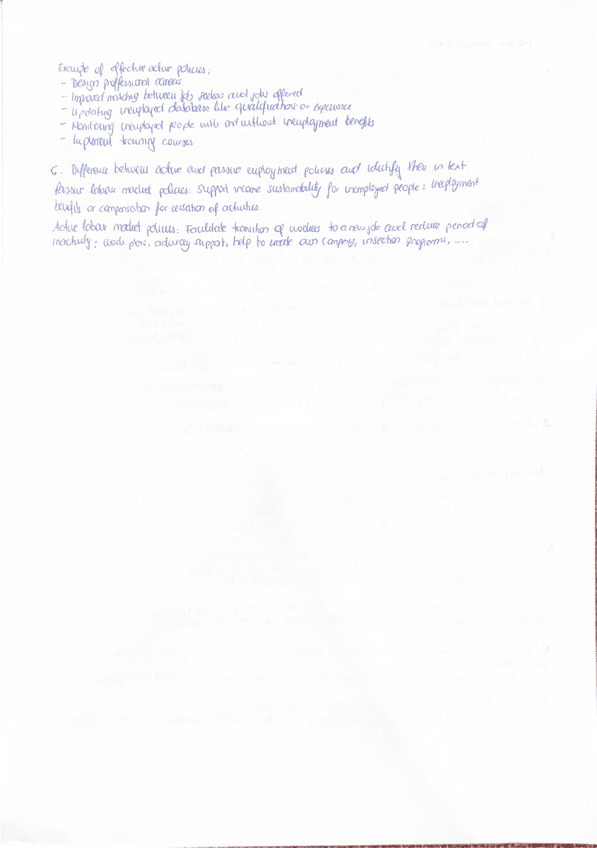 Example of effective active policies:
- Design proffessional careers
- Improved matching between job seekers and jobs offered
- Updating unemployed database like qualifications or experience
- Monitoring unemployed people with and without unemployment benefits
- Implement training courses
6. Difference between active and passive employment policies and identify them in text
Passive labour market policies: Support income sustainability for unemployed people: unemployment
benefits or compensation for cessation of activities.
Active labour market policies: Facilitate transition of workers to a new job and reduce period of
inactivity: work plans, advisory support, help to create own company, insertion programs, ....